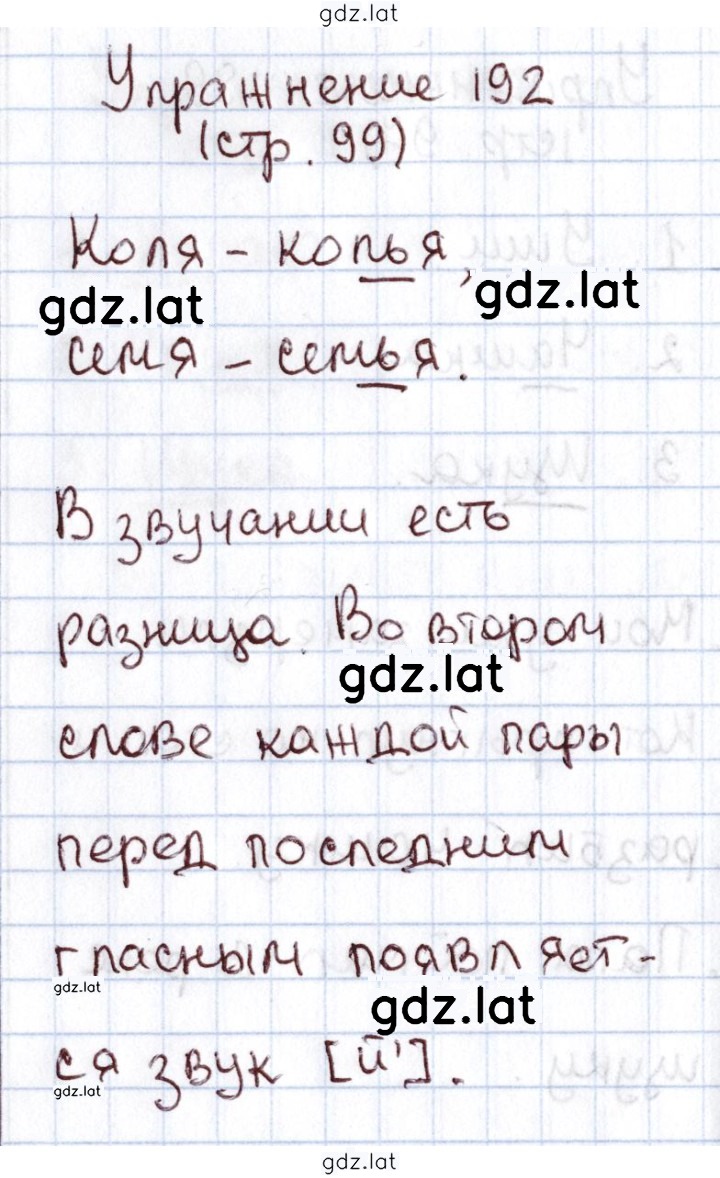 gdz.lat
Упражнение 192
(стр. 99)
Коля - колья,
gdz.lat gdz.lat
семя - семья.
В звучании есть
разница. Во втором
gdz.lat
слове каждой пары
перед последним
гласным появляет-
gdz.lat gdz.lat
ся звук [й'].
gdz.lat
gdz.lat